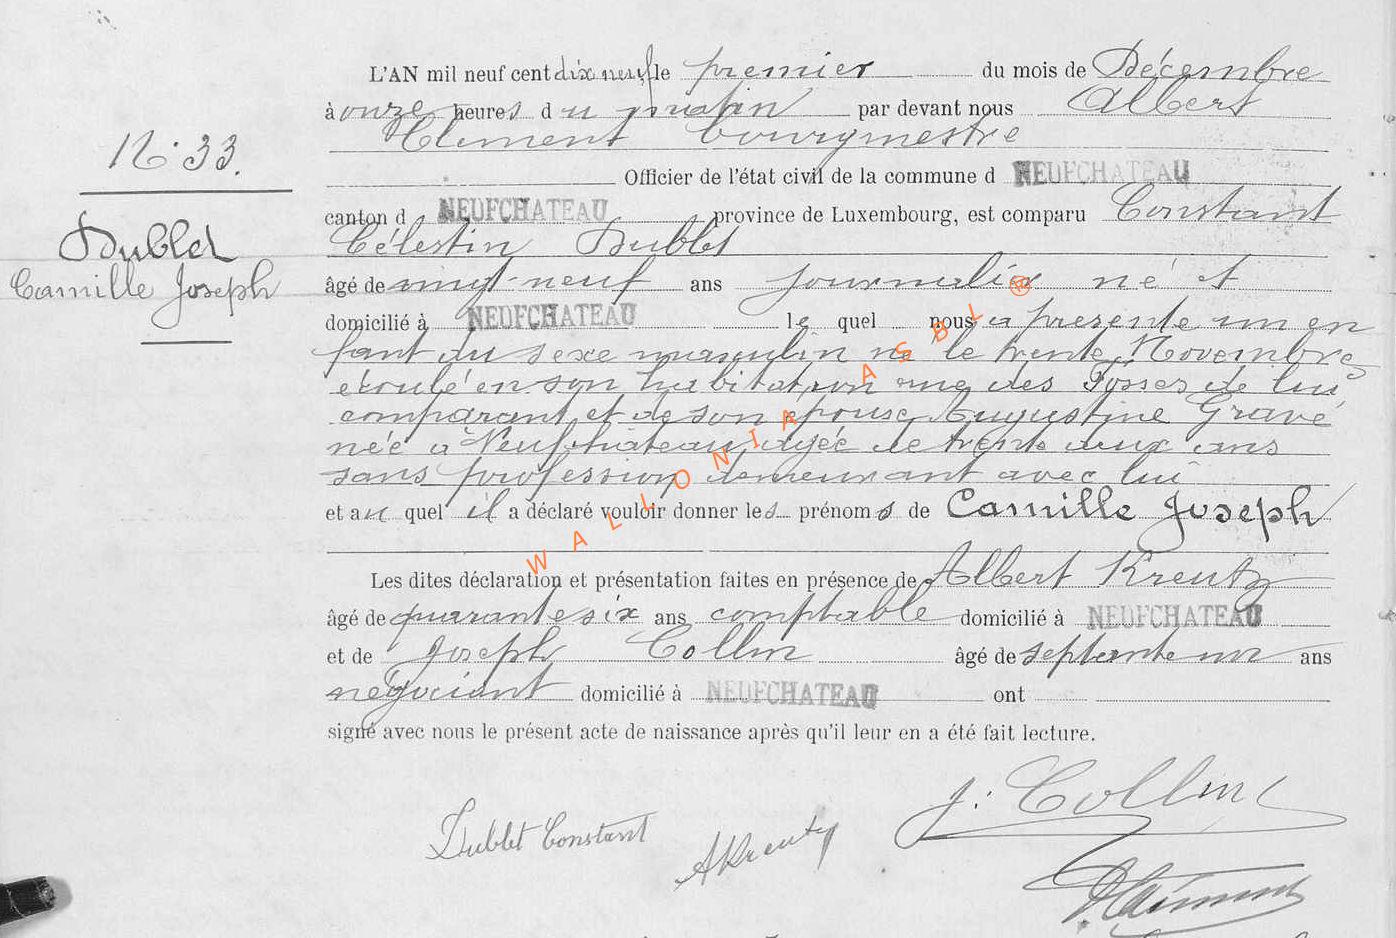 L'AN mil neuf cent dix neuf le premier du mois de Décembre
à onze heures du matin par devant nous Albert
Clément bourgmestre
Officier de l'état civil de la commune d NEUFCHATEAU
canton d NEUFCHATEAU province de Luxembourg, est comparu Constant
Célestin Dublet
âgé de vingt-neuf ans journalier né et
domicilié à NEUFCHATEAU le quel nous a présenté un en
fant du sexe masculin né le trente Novembre
écoulé en son habitation rue des Fosses de lui
comparant et de son épouse Augustine Gravé
née à Neufchateau agée de trente deux ans
sans profession demeurant avec lui
et au quel il a déclaré vouloir donner les prénoms de Camille Joseph
Les dites déclaration et présentation faites en présence de Albert Kreutz
âgé de quarante six ans comptable domicilié à NEUFCHATEAU
et de Joseph Collin âgé de septante un ans
négociant domicilié à NEUFCHATEAU ont
signé avec nous le présent acte de naissance après qu'il leur en a été fait lecture.
N. 33.
Dublet
Camille Joseph
J. Collin
Dublet Constant
AKreutz
WALLONIA ASBL ®